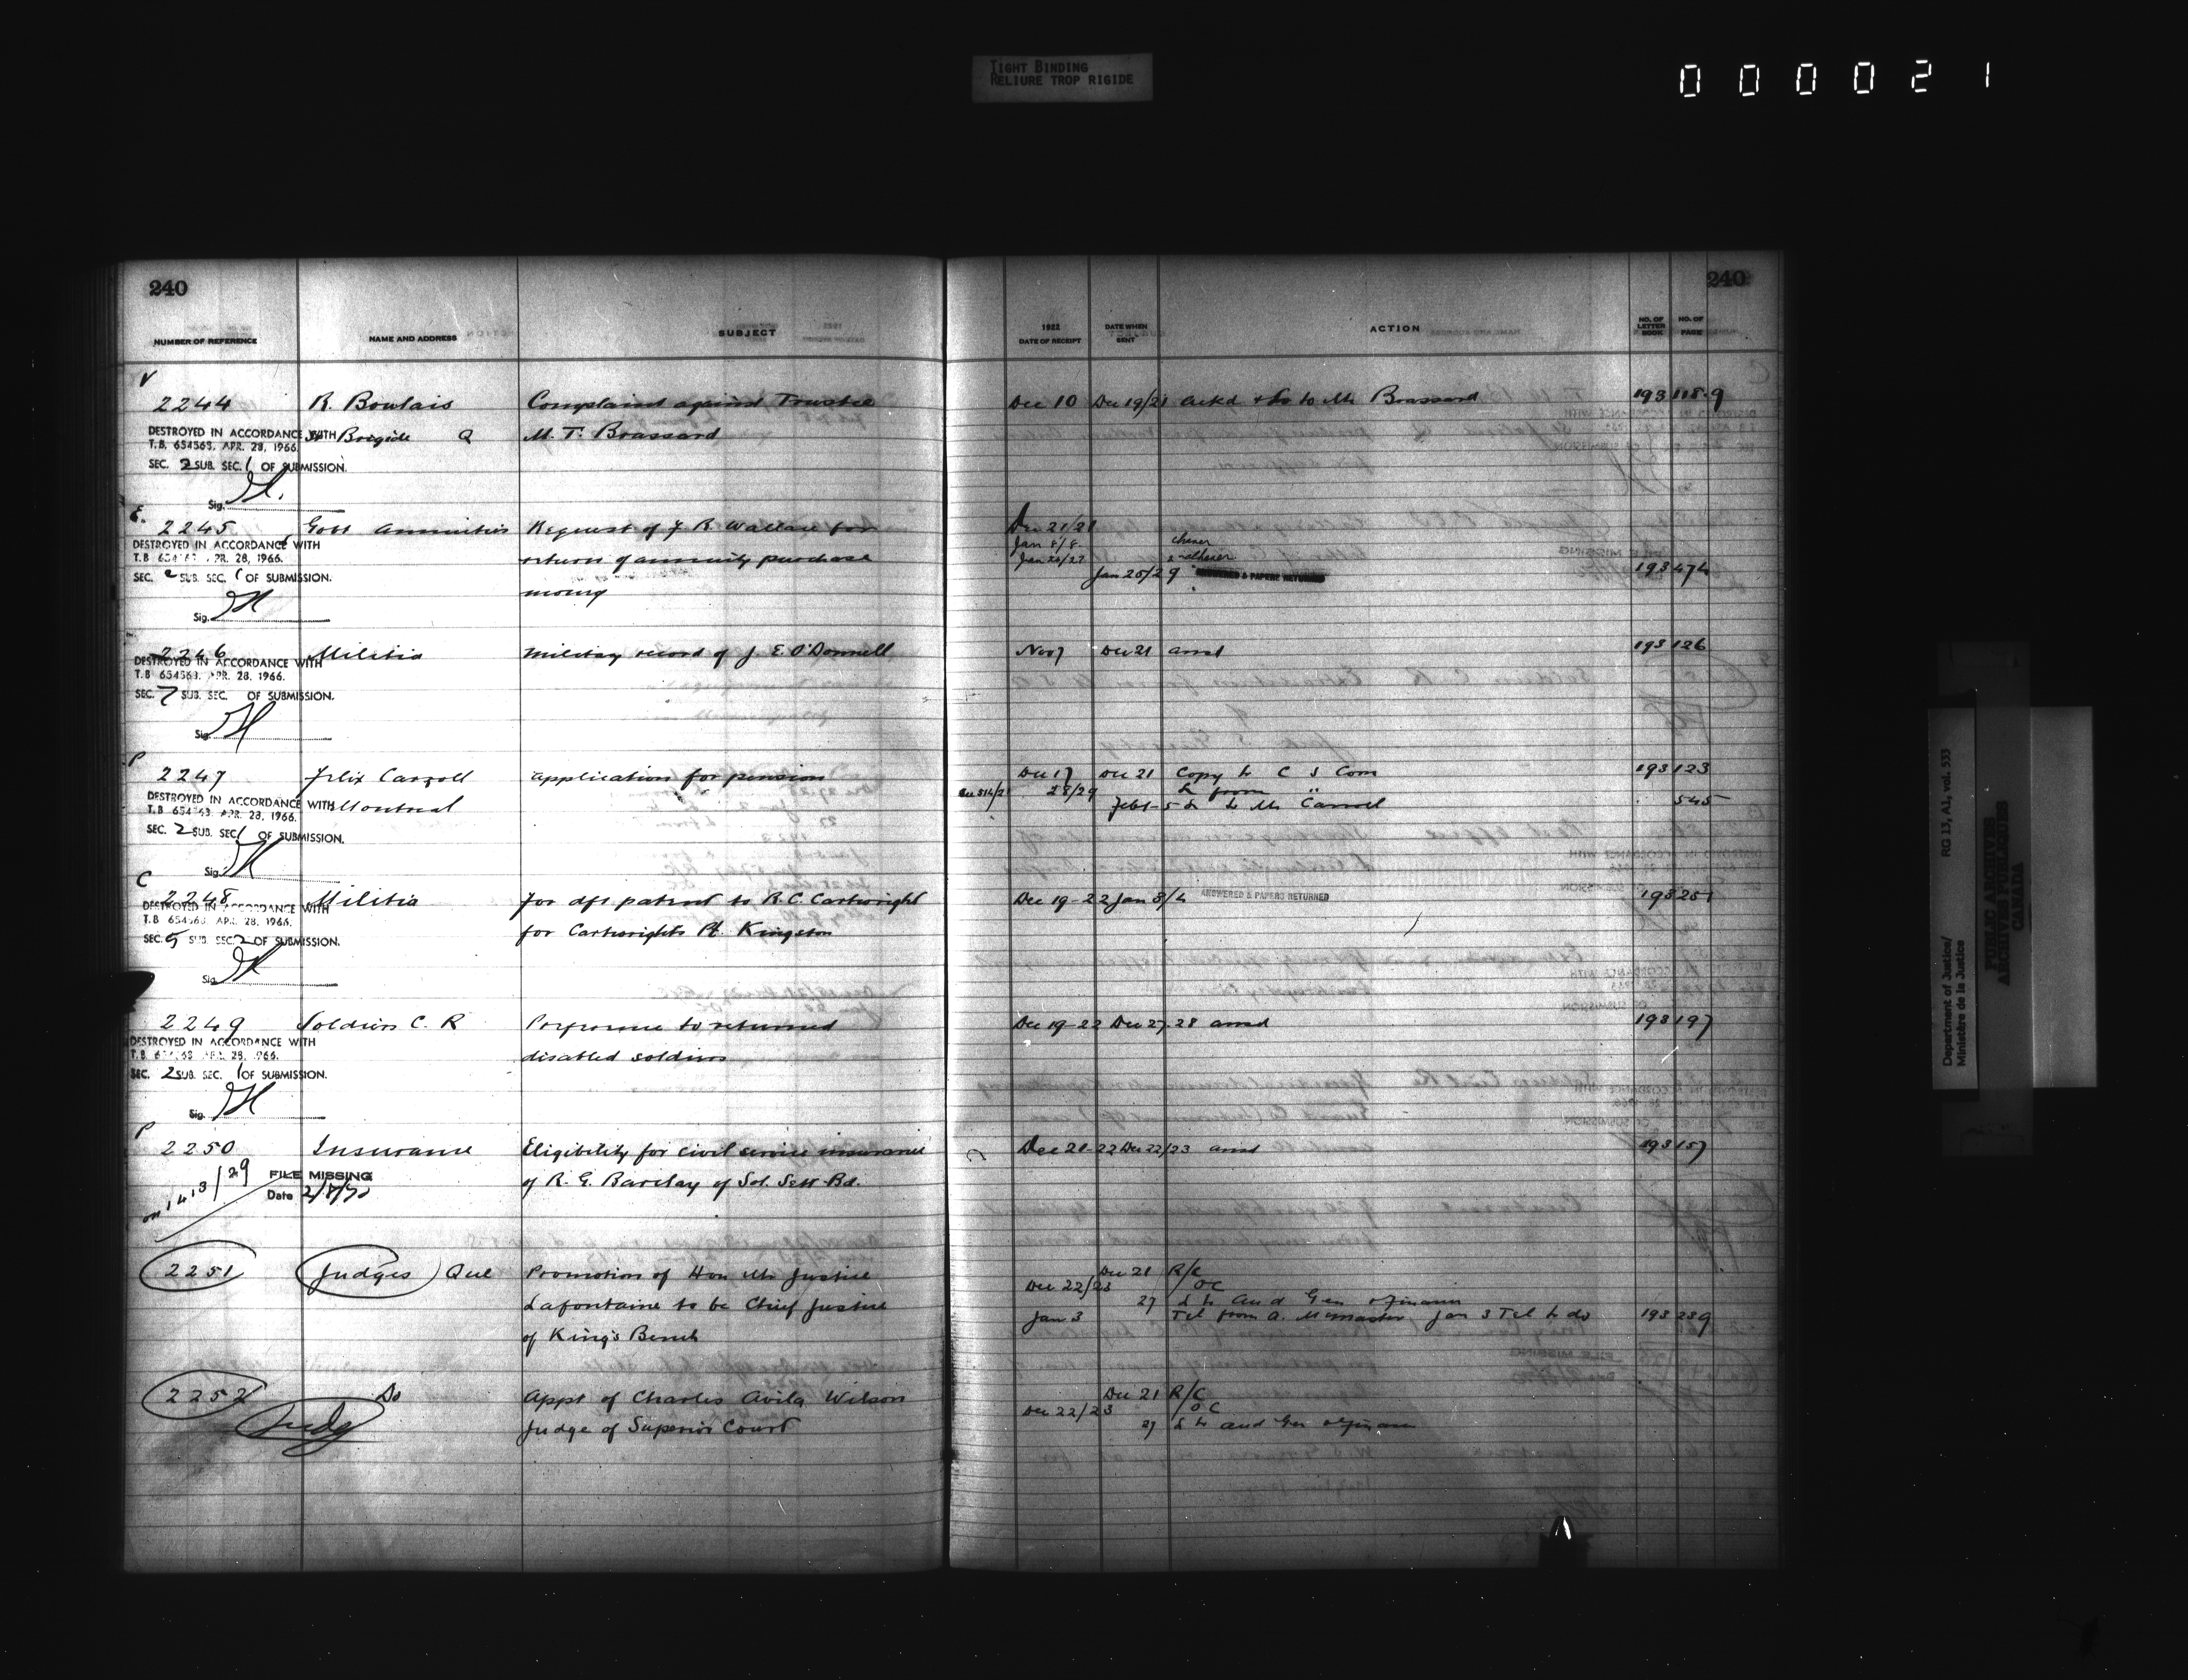 TIGHT BINDING
RELIURE TROP RIGIDE
000021
240
240
NUMBER OF REFERENCE NAME AND ADDRESS SUBJECT 1922 DATE OF RECEIPT DATE WHEN SENT ACTION NO. OF LETTER BOOK NO. OF PAGE
V
2244 R. Bowlais Complaint against Trustee Dec 10 Dec 19/21 ackd + L to Mr Brassard 193 118-9
St Brigide Q M. T. Brassard
DESTROYED IN ACCORDANCE WITH
T.B. 654563. APR. 28, 1966.
SEC. 2 SUB. SEC. 1 OF SUBMISSION.
Sig.
E.
2245 Govt Annuities Request of J R Wallace for Dec 21/21
return of annuity purchase Jan 8/8
money
Jan 25/29 ANSWERED & PAPERS RETURNED 193 474
DESTROYED IN ACCORDANCE WITH
T.B. 654563. APR. 28, 1966.
SEC. 2 SUB. SEC. 1 OF SUBMISSION.
Sig.
2246 Militia Military record of J. E. O'Donnell Nov 7 Dec 21 ansd 193 126
DESTROYED IN ACCORDANCE WITH
T.B 654563. APR. 28, 1966.
SEC. 7 SUB. SEC. OF SUBMISSION.
Sig.
P
2247 Felix Carroll application for pension Dec 17 Dec 21 Copy to C S Com 193 123
Montreal 28/29 L from "
Feby 5 L to Mr Carroll 545
DESTROYED IN ACCORDANCE WITH
T.B 654563. APR. 28, 1966.
SEC. 2 SUB. SEC. 1 OF SUBMISSION.
Sig.
C
2248 Militia For dft patent to R. C. Cartwright Dec 19-22 Jan 3/4 ANSWERED & PAPERS RETURNED 193 251
for Cartwrights Pt. Kingston
DESTROYED IN ACCORDANCE WITH
T.B 654563. APR. 28, 1966.
SEC. 5 SUB. SEC. 2 OF SUBMISSION.
Sig.
2249 Soldiers C. R Preference to returned Dec 19-22 Dec 27-28 ansd 193 197
disabled soldiers
DESTROYED IN ACCORDANCE WITH
T.B. 654563 APR. 28, 1966.
SEC. 2 SUB. SEC. 1 OF SUBMISSION.
Sig.
P
2250 Insurance Eligibility for civil service insurance Dec 21-22 Dec 22/23 ansd 193 157
of R. G. Barclay of Sol. Sett Bd.
FILE MISSING
Date
2251 Judges Que Promotion of Hon Mr Justice Dec 21 R/C
Dec 22/23 OC
Lafontaine to be Chief Justice 27 L to Aud Gen & Finance
Jan 3 Tel from A. McMaster Jan 3 Tel to do 193 239
of King's Bench
2252 Do Appt of Charles Avila Wilson Dec 21 R/C
Dec 22/23 OC
Judg Judge of Superior Court 27 L to Aud Gen & Finance
Department of Justice/
Ministère de la Justice
RG 13, A1, vol. 533
PUBLIC ARCHIVES
ARCHIVES PUBLIQUES
CANADA